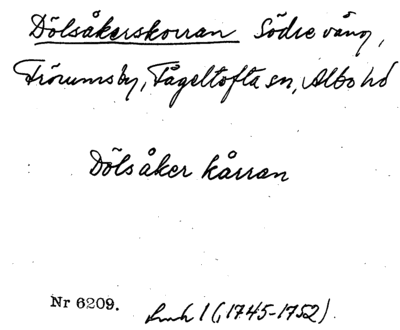 Dölsåkerskorran Södre vång,
Frörumsby, Fågeltofta sn, Albo hd
Dölsåker kårran
Nr 6209.
1 (1745-1752).